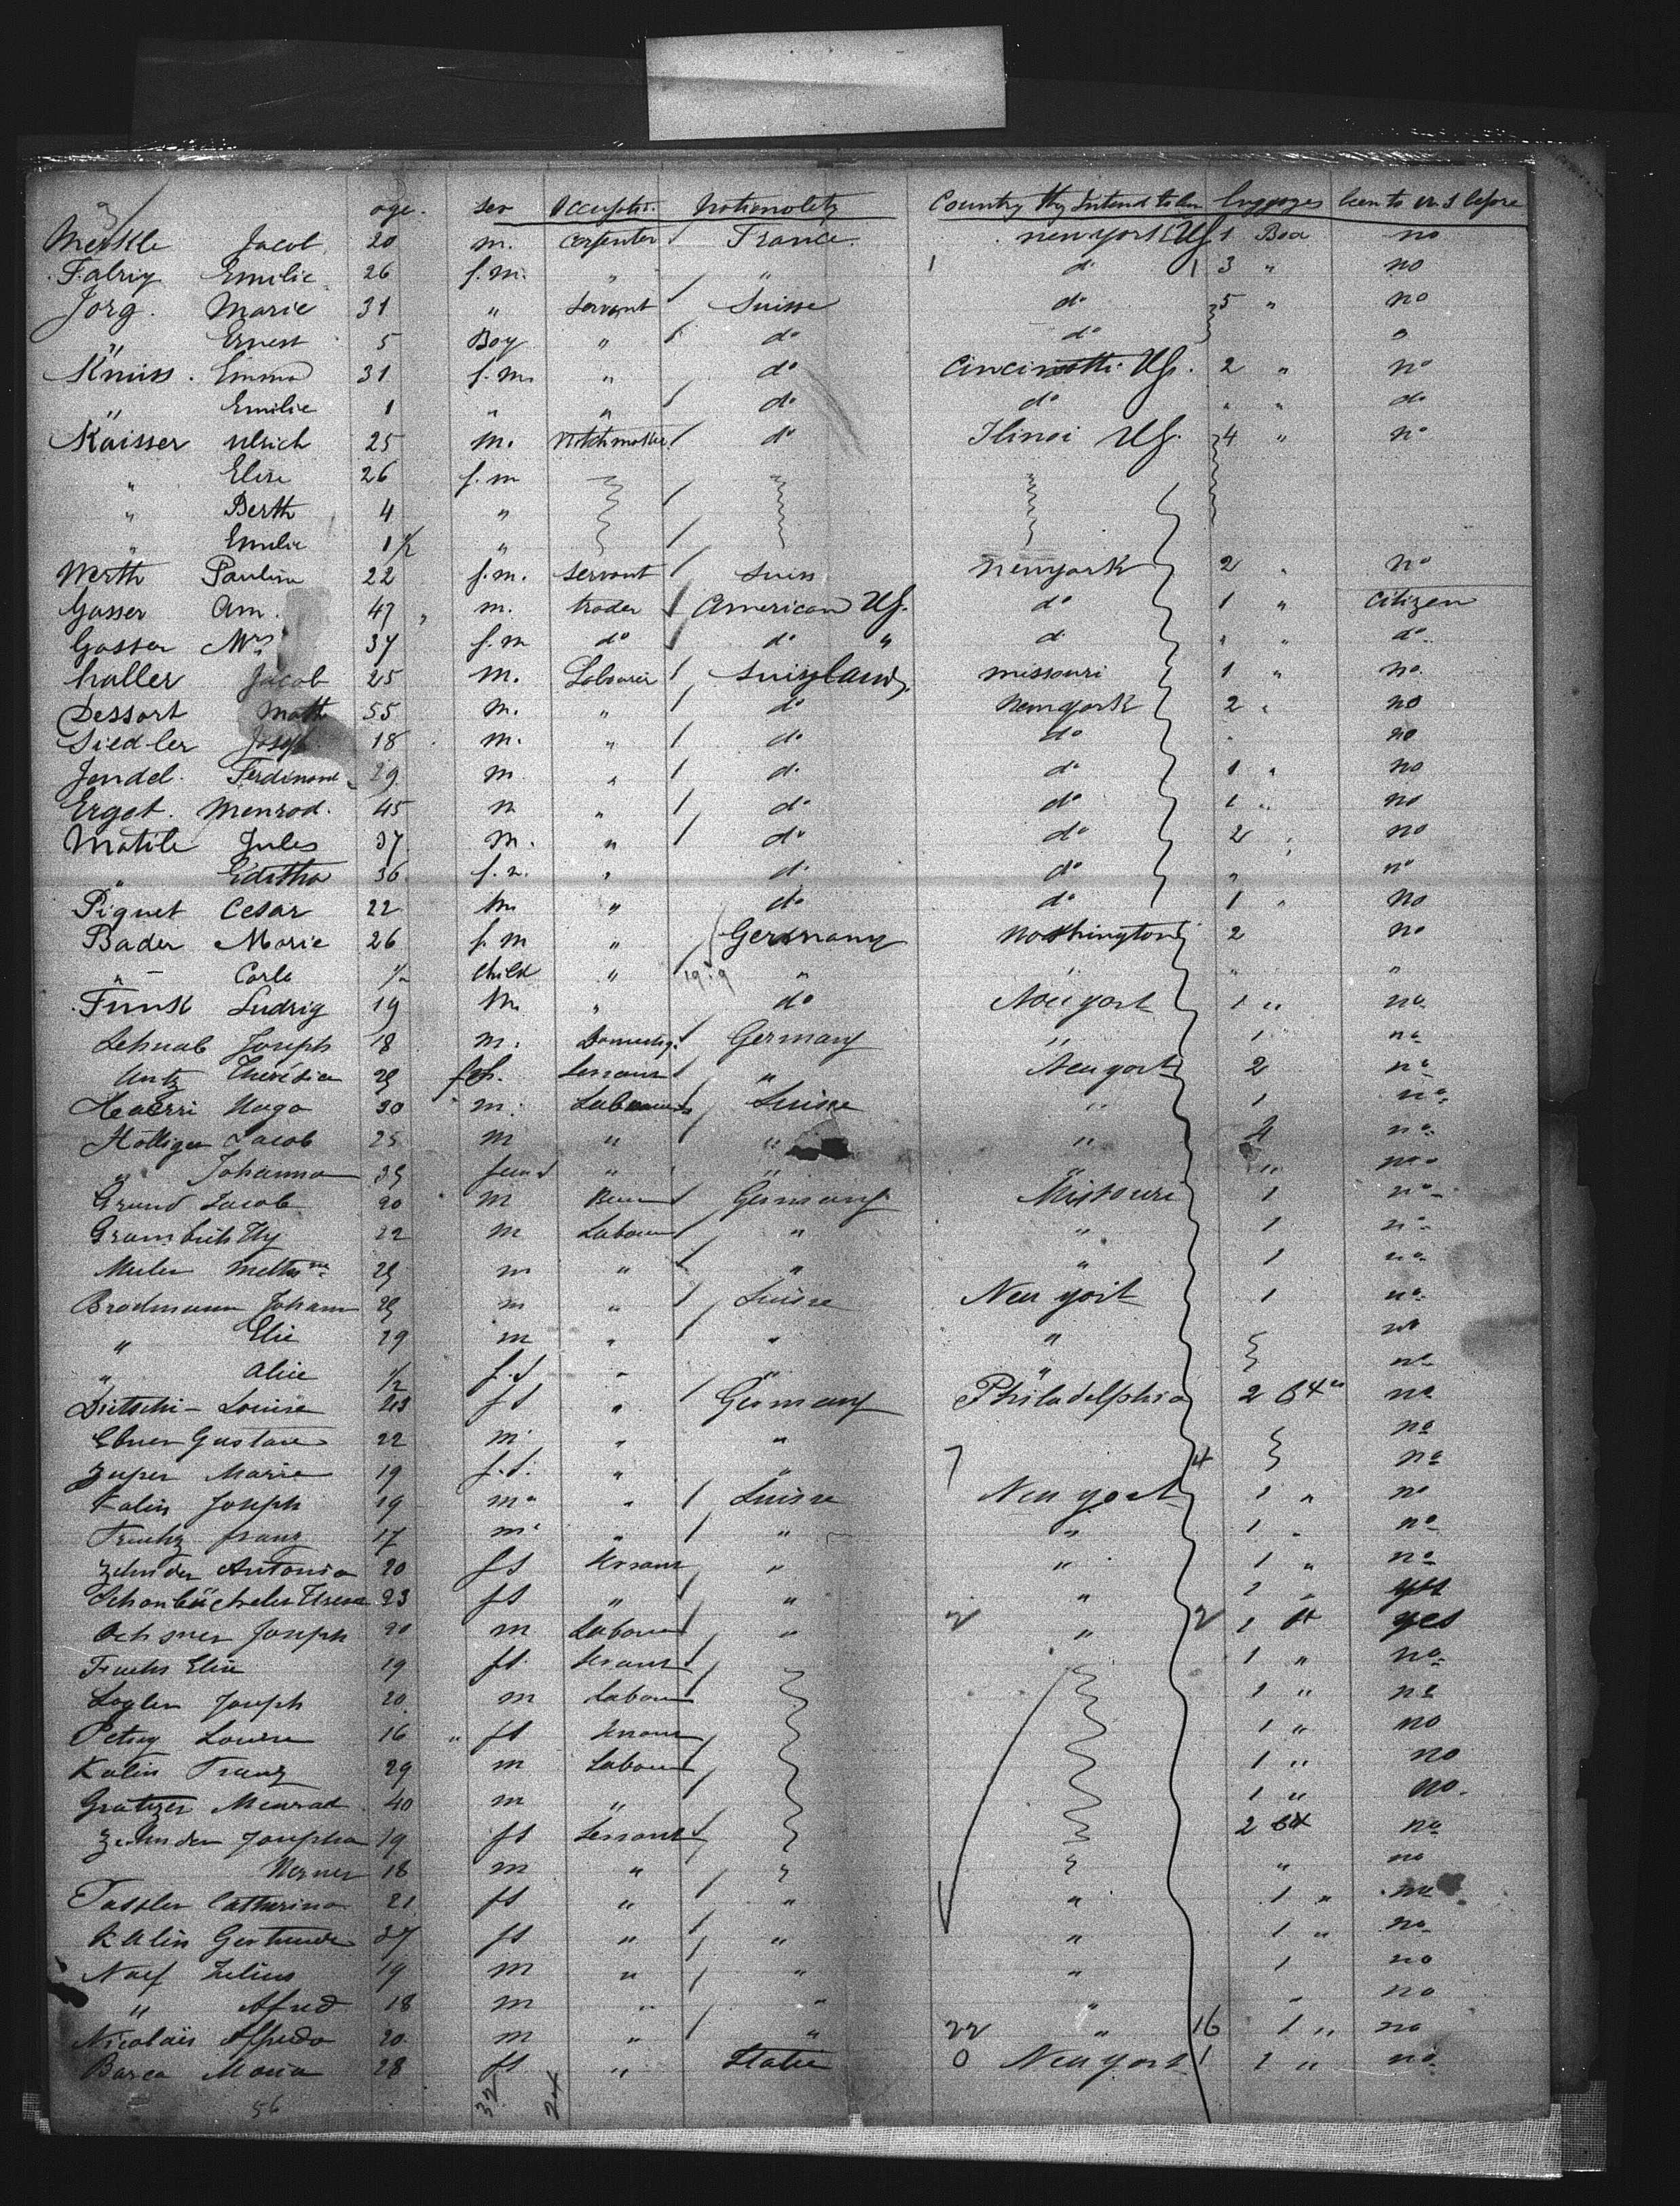 age. sex Occupatn. Nationality Country thy Intend to luggages been to U.S before
Merkle Jacob 20 m. Carpenter France. newyork US 1 Box no
Falrig Emilie 26 f.m. " " 1 do 1 3 " no
Jorg. Marie 31 " Servant Suisse do 5 " no
" Ernest 5 Boy " do do "
Kniss. Emma 31 f.m. " do Cincinatti US. 2 " no
" Emilie 1 " " do do " " do
Kaisser Ulrich 25 m. Wotchmaker do Ilinoi US. 4 " no
" Elise 26 f.m
" Berth 4 "
" Emilie 1 1/2 "
Werth Paulina 22 f.m. Servant Suiss newyork 2 " no
Gasser Am. 47 m. trader American US. do 1 " Citizen
Gasser Mrs 37 f.m do do " do " " do
haller Jacob 25 m. Labourer Suissland missouri 1 " no
Dessort Math 55 m. " do newyork 2 " no
Siedler Joseph 18 m. " do do " no
Jendel. Ferdinand 29 m " do do 1 " no
Erget. Menrod. 45 m " do do 1 " no
Matile Jules 37 m. " do do 2 " no
" Editha 36 f.m. " do do " no
Piquet Cesar 22 m " do do 1 " no
Bader Marie 26 f.m " Germany Washington 2 no
" Carle 1/2 Child " " " " "
Funk Ludvig 19 m " do New york 1 " no
Schwab Joseph 18 m. Domestiq. Germany " 1 no
Untz Theresia 29 ff. Servant " New york 2 no
Haerri Hugo 30 m. Labourer Suisse " 1 no
Holliger Jacob 25 m " " " 4 no
" Johanna 29 " " " " no
Grund Jacob 20 m Germany Missouri 1 no
22 m Labour " " 1 no
Meler 29 m " " " 1 no
Brodmann Johann 29 m " Suisse New york 1 no
" Elie 29 m " " " no
" Alice 1/2 f.s " " " no
Dietschi - Louise 23 fs " Germany Philadelphia 2 no
Ebner Gustave 22 m " " no
Zuper Marie 19 f.s. " " 7 4 no
Kalin Joseph 19 m " Suisse New york 1 " no
franz 17 m " " " 1 " no
Zehnder Antonia 20 fs Servant " " 1 " no
Schonbächeler 23 fs " " " 1 " yes
Ochsner Joseph 20 m Labour " 2 " 2 1 yes
Fuchs Elise 19 fs Servant 1 " no
Joseph 20 m Labour 1 " no
Petrig Louise 16 " fs Servant 1 " no
Kalin Franz 29 m Labour 1 " no
Gratzer Menrad 40 m " 1 " no.
Zehnder Josepha 19 fs Servant 2 no
Werner 18 m " " no
Tassler Catherina 21 fs " " " 1 " no
Kalin Gertrude 27 fs " " " 1 " no
Naef Julius 19 m " " " 1 no
" Alfred 18 m " " " " no
Nicolais Alfredo 20 m " " 22 " 16 1 " no
Barca Maria 28 fs " Italie 0 New york 1 1 " no
56 32 24